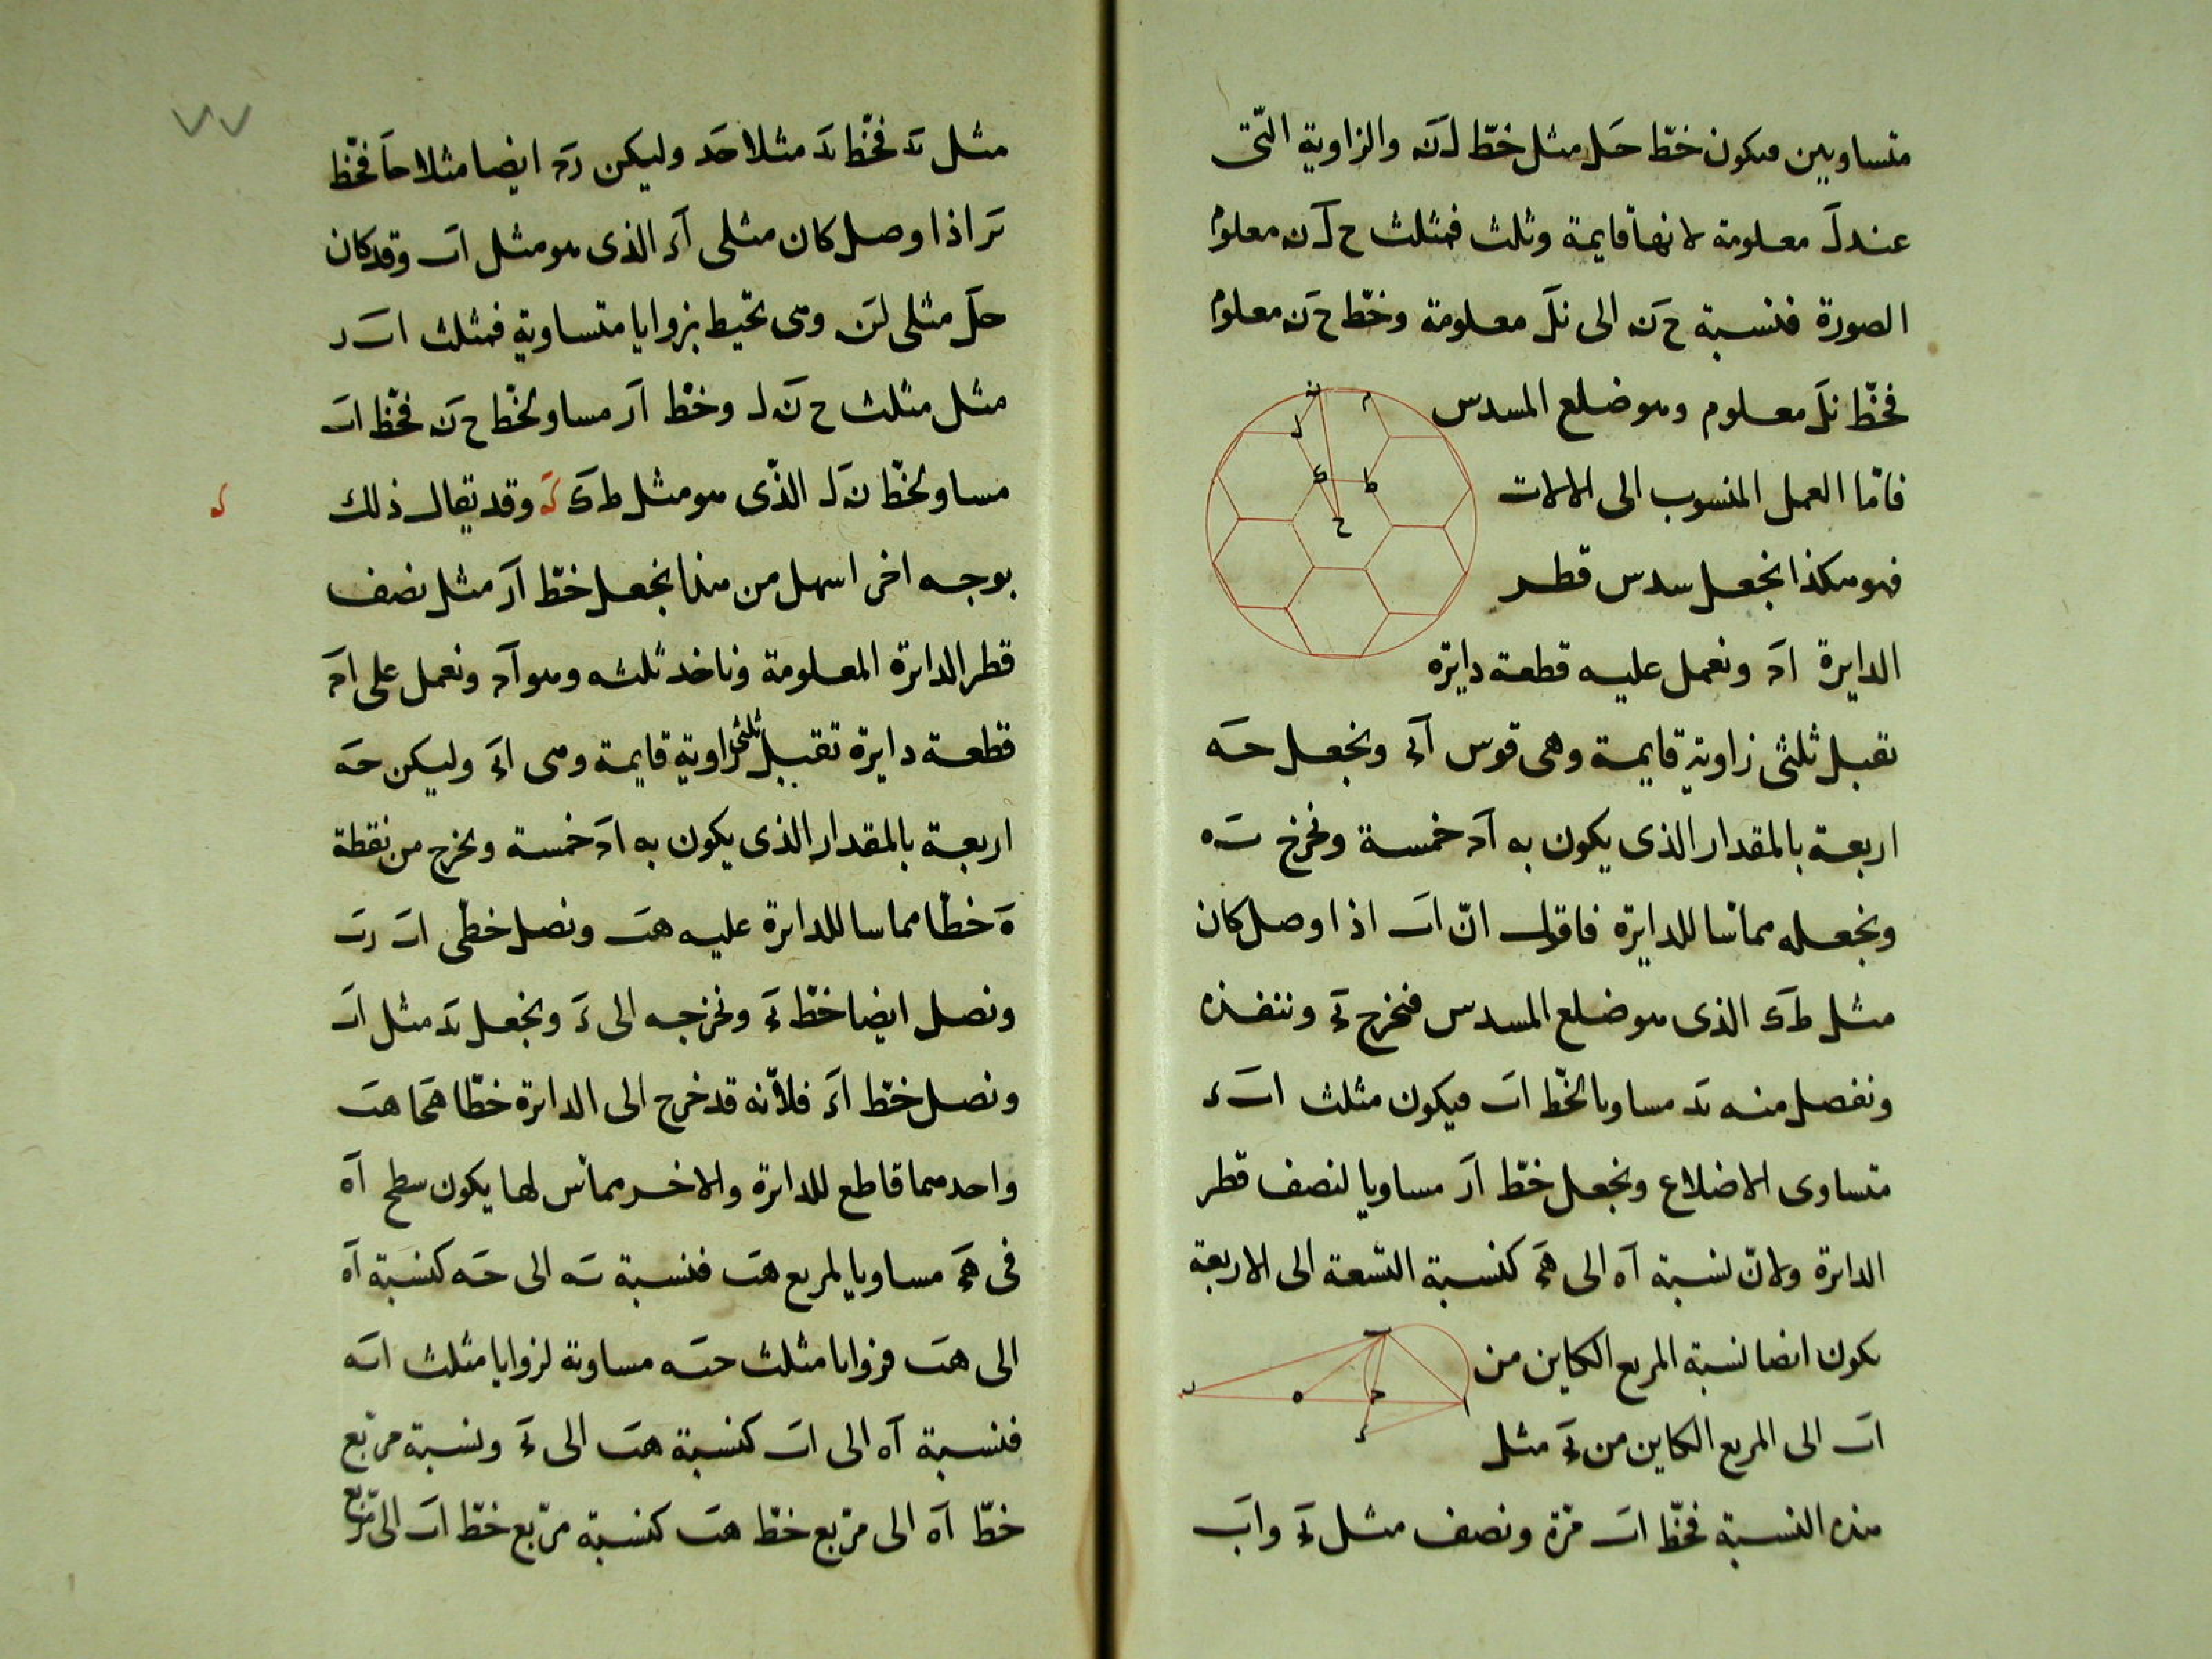 متساويين فيكون خطّ حل مثل خطّ لن والزاوية الّتى
عند ل معلومة لانها قايمة وثلث فمثلث ح ل ن معلوم
الصورة فنسبة ح ن الى نل معلومة وخطّ ح ن معلوم
فخطّ نل معلوم وهو ضلع المسدس
فامّا العمل المنسوب الى الالات
فهو هكذا نجعل سدس قطر
الدايرة اح ونعمل عليه قطعة دايرة
تقبل ثلثى زاوية قايمة وهى قوس ونجعل حه
اربعة بالمقدار الذى يكون به اح خمسة ونخرج ته
ونجعله مماسّا للدايرة فاقول انّ اب اذا وصل كان
مثل ط ك الذى هو ضلع المسدس فنخرج وننفذه
ونفصل منه مساويا لخطّ اب فيكون مثلث
متساوى الاضلاع ونجعل خطّ ار مساويا لنصف قطر
الدايرة ولانّ نسبة اه الى هح كنسبة التسعة الى الاربعة
يكون ايضا نسبة المربع الكاين من
اب الى المربع الكاين من بح مثل
هذه النسبة فخطّ اب مرّة ونصف مثل بح واب
٧٧
مثل فخطّ مثلا حد وليكن رح ايضا مثلا حا فخطّ
بر اذا وصل كان مثلى اء الذى هو مثل اب وقد كان
حل مثلى لن وهى تحيط بزوايا متساوية فمثلث اب ر
مثل مثلث ح ن ل وخطّ ار مساو لخطّ ح ن فخطّ اب
مساو لخطّ ن ل الذّى هو مثل ط ك وقد يقال ذلك
بوجه اخر اسهل من هذا نجعل خطّ ار مثل نصف
قطر الدايرة المعلومة وناخذ ثلثه وهو اح ونعمل على اح
قطعة دايرة تقبل ثلثى زاوية قايمة وهى وليكن حه
اربعة بالمقدار الذى يكون به اح خمسة ونخرج من نقطة
ه خطّا مماسا للدايرة عليه هب ونصل خطى اب رب
ونصل ايضا خطّ بح ونخرجه الى ونجعل مثل اب
ونصل خطّ اء فلانّه قد خرج الى الدايرة خطّا هحا هب
واحدهما قاطع للدايرة والاخر مماسّ لها يكون سطح اه
فى هح مساويا لمربع هب فنسبة به الى حه كنسبة اه
الى هب فزوايا مثلث حبه مساوية لزوايا مثلث ابه
فنسبة اه الى اب كنسبة هب الى بح ونسبة مربّع
خطّ اه الى مربّع خطّ هب كنسبة مربّع خطّ اب الى مربّع